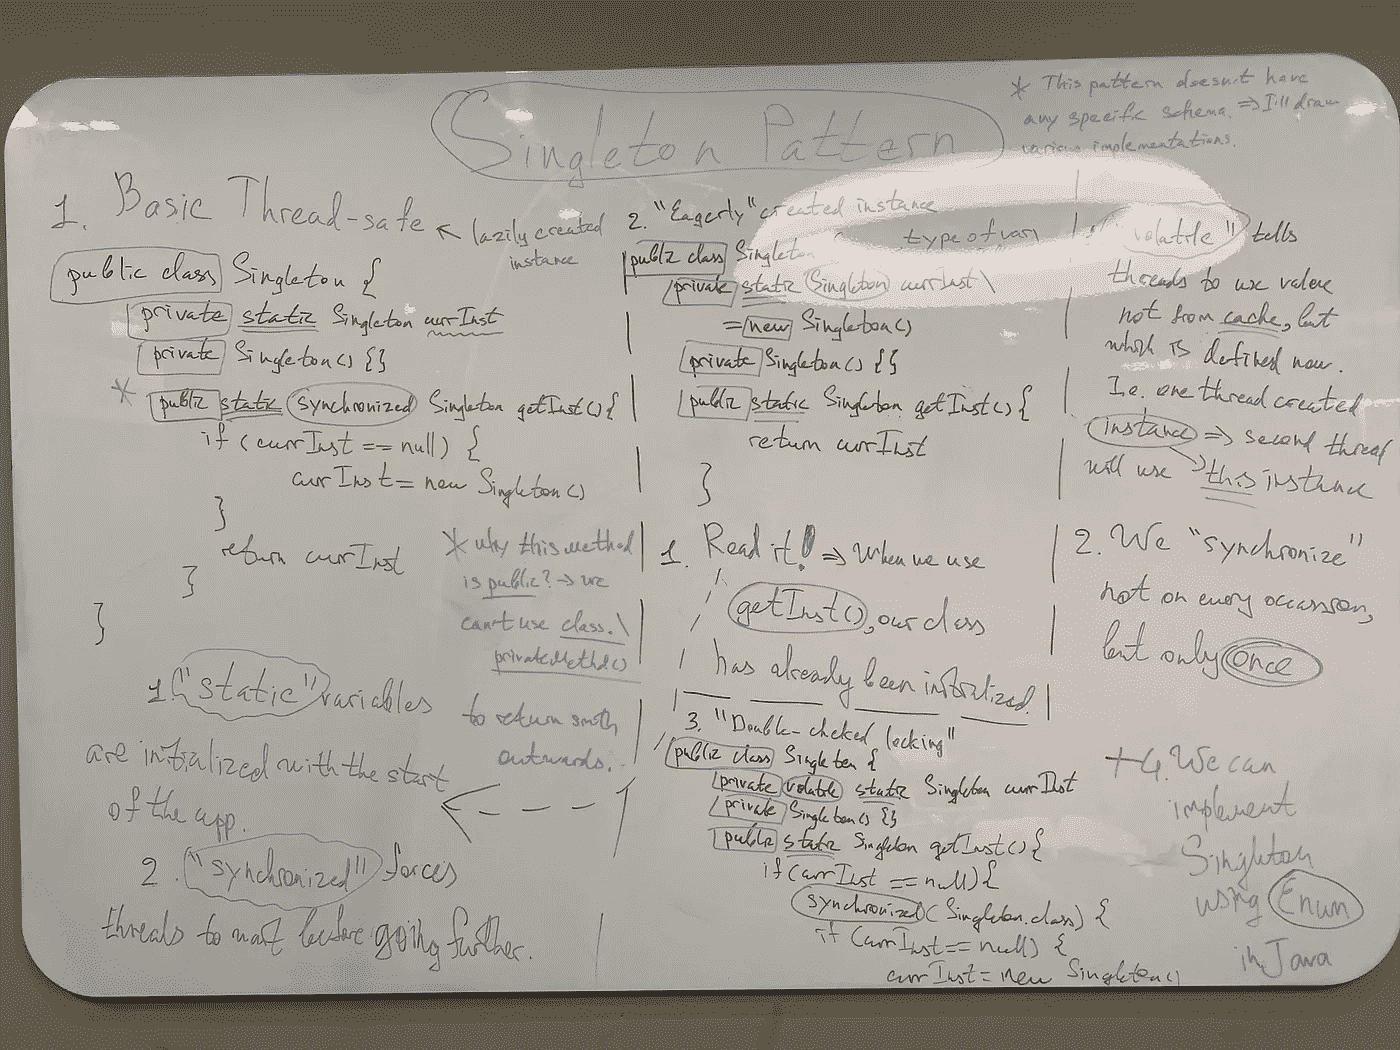 Singleton Pattern
* This pattern doesn't have
any specific schema. => I'll draw
various implementations.
1. Basic Thread-safe <- lazily created
instance
public class Singleton {
private static Singleton currInst
private Singleton() {}
* public static synchronized Singleton getInst() {
if (currInst == null) {
currInst = new Singleton()
}
return currInst
}
}
* why this method
is public? -> we
can't use class.\
privateMethod()
to return smth
outwards.
1. "static" variables
are initialized with the start
of the app.
2. "synchronized" forces
threads to wait before going further.
2. "Eagerly" created instance
type of var
public class Singleton
private static Singleton currInst \
= new Singleton()
private Singleton() {}
public static Singleton getInst() {
return currInst
}
1. Read it! => When we use
getInst(), our class
has already been initialized.
3. "Double-checked locking"
public class Singleton {
private volatile static Singleton currInst
private Singleton() {}
public static Singleton getInst() {
if (currInst == null) {
synchronized (Singleton.class) {
if (currInst == null) {
currInst = new Singleton()
"volatile" tells
threads to use value
not from cache, but
which is defined now.
I.e. one thread created
instance => second thread
will use this instance
2. We "synchronize"
not on every occassion,
but only once
+ 4. We can
implement
Singleton
using Enum
in Java